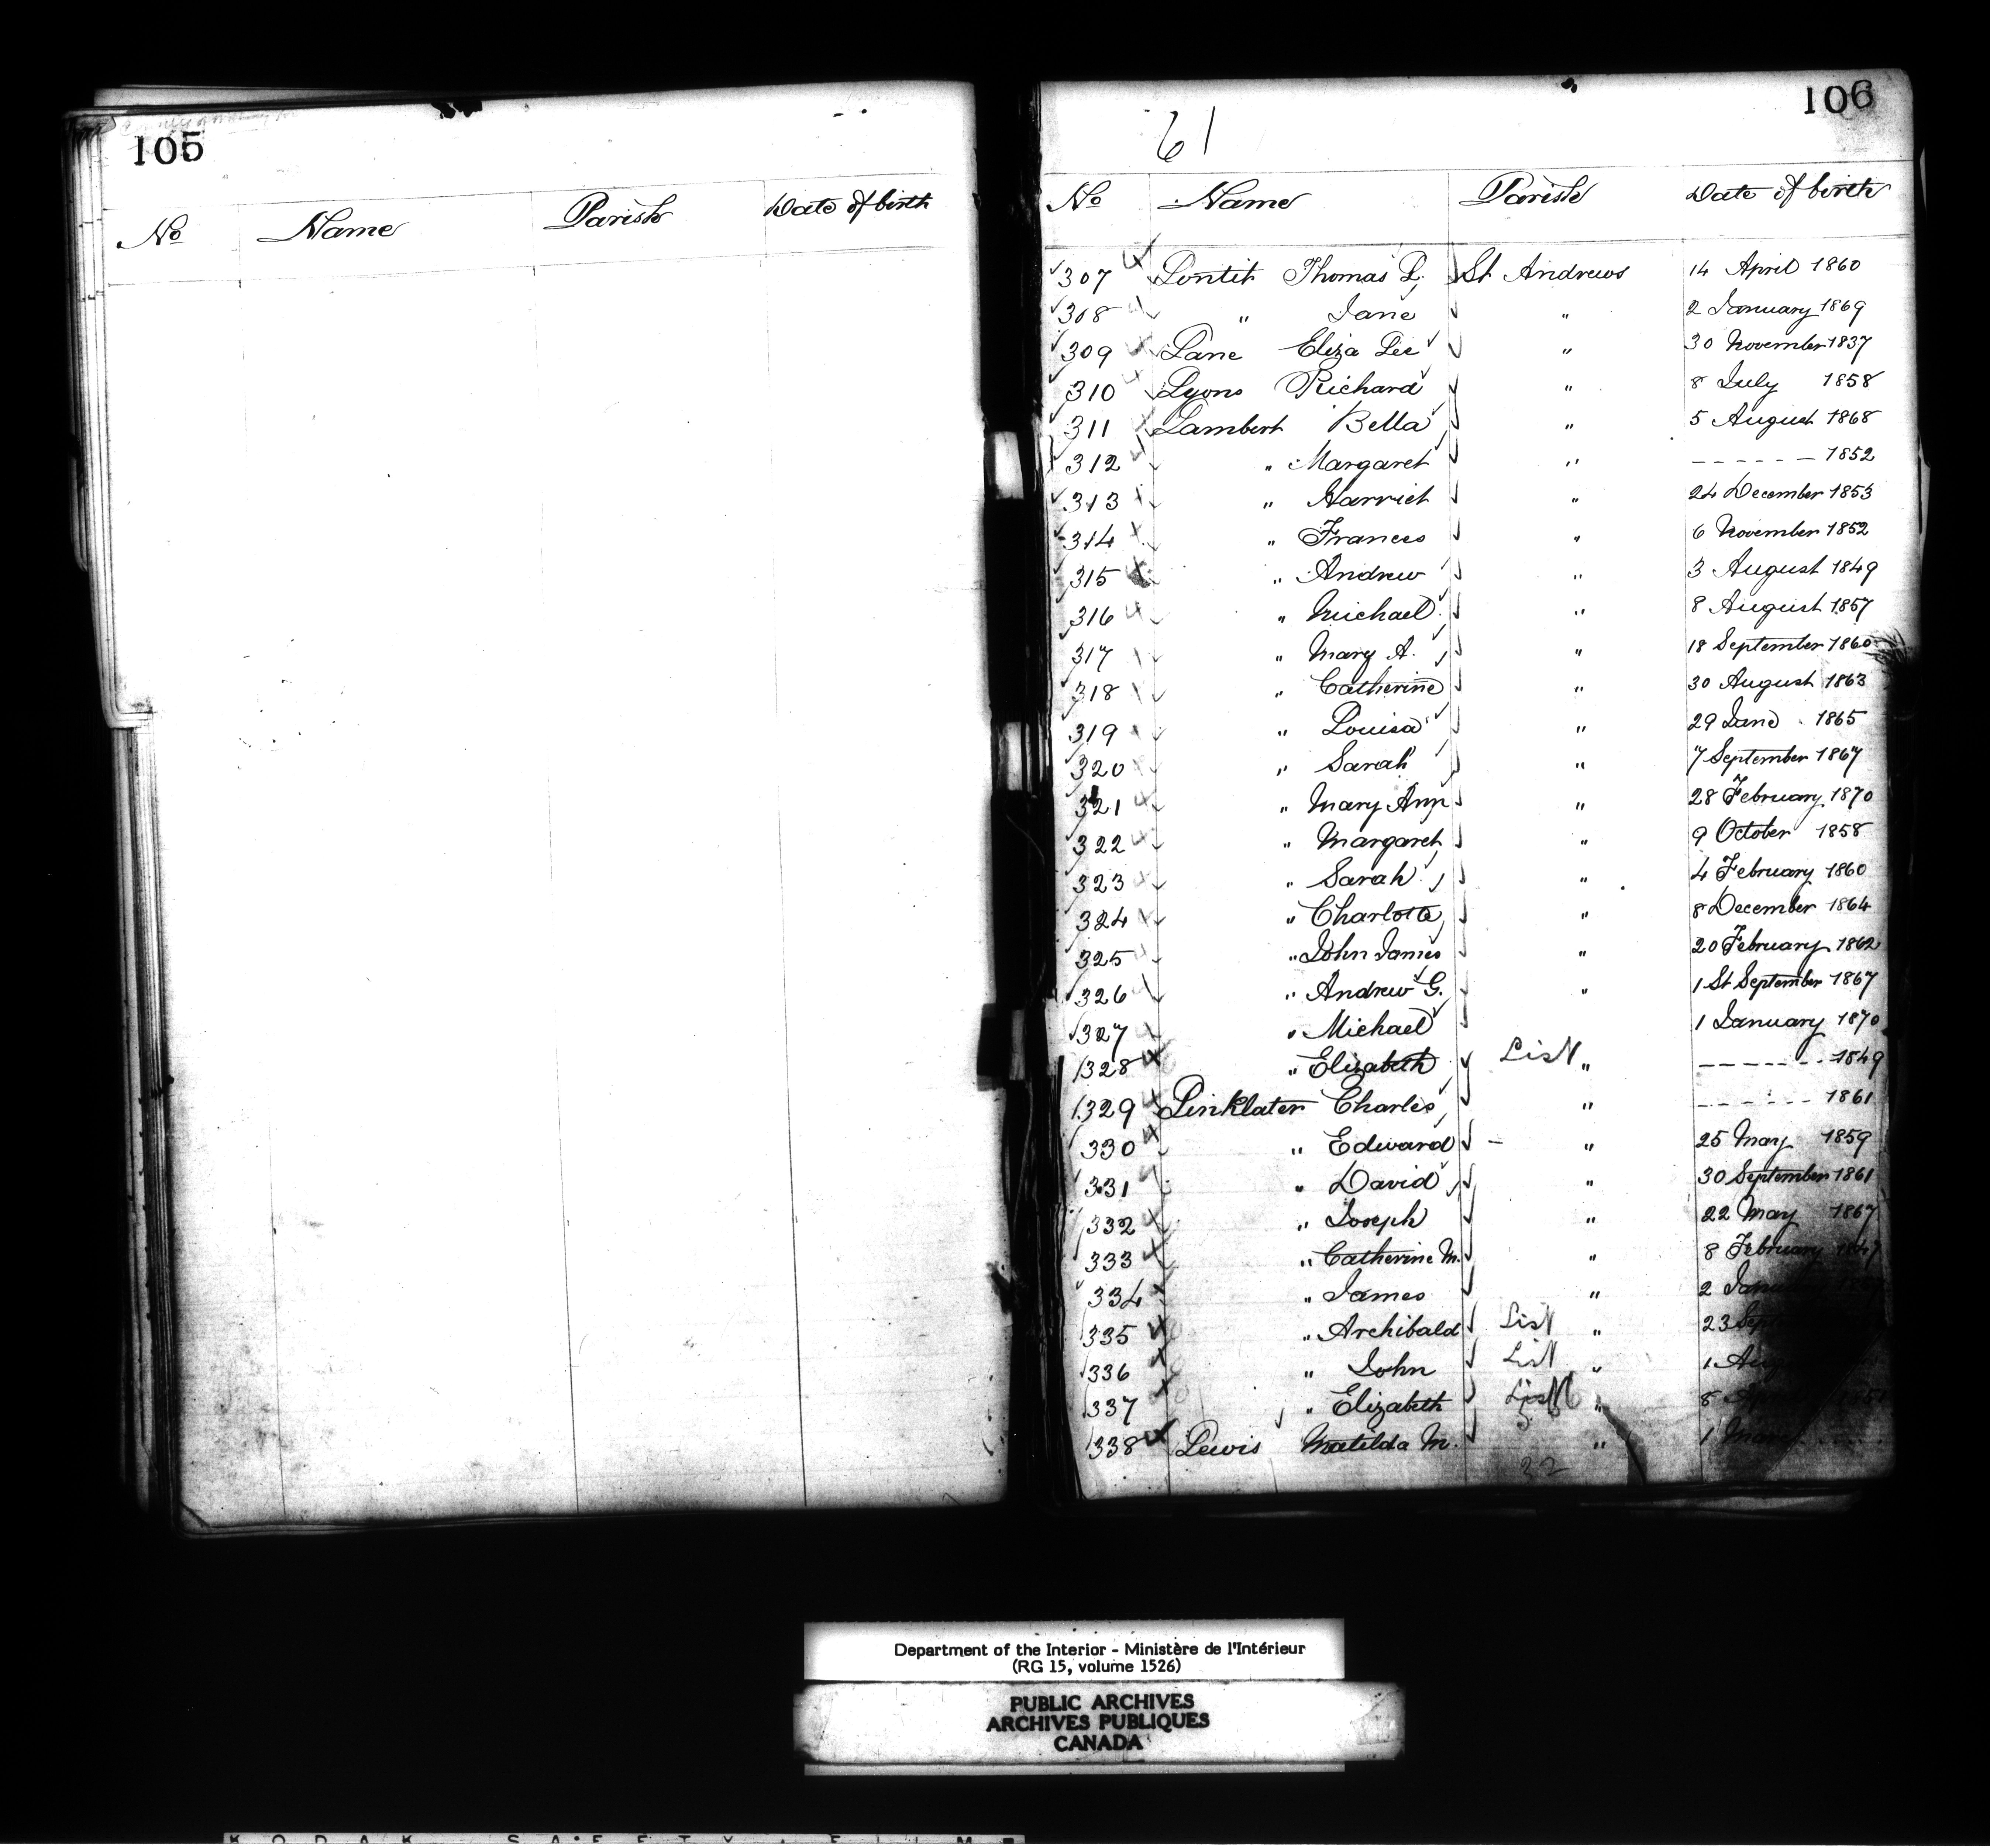 105
No Name Parish Date of birth
106
61
No Name Parish Date of birth
307 Lontit Thomas L. St Andrews 14 April 1860
308 " Jane " 2 January 1869
309 Lane Eliza Lee " 30 November 1837
310 Lyons Richard " 8 July 1858
311 Lambert Bella " 5 August 1868
312 " Margaret " ------ 1852
313 " Harriet " 24 December 1853
314 " Frances " 6 November 1852
315 " Andrew " 3 August 1849
316 " Michael " 8 August 1857
317 " Mary A. " 18 September 1860
318 " Catherine " 30 August 1863
319 " Louisa " 29 June 1865
320 " Sarah " 7 September 1867
321 " Mary Ann " 28 February 1870
322 " Margaret " 9 October 1858
323 " Sarah " 4 February 1860
324 " Charlotte " 8 December 1864
325 " John James " 20 February 1862
326 " Andrew G. " 1 St September 1867
327 " Michael " 1 January 1870
328 " Elizabeth List " ------ 1849
329 Linklater Charles " ------ 1861
330 " Edward - " 25 May 1859
331 " David " 30 September 1861
332 " Joseph " 22 May 1867
333 " Catherine M. " 8 February
334 " James " 2
335 " Archibald List " 23 Sept
336 " John List " 1
337 " Elizabeth List " 8
338 Lewis Matilda M. " 1
32
Department of the Interior - Ministère de l'Intérieur
(RG 15, volume 1526)
PUBLIC ARCHIVES
ARCHIVES PUBLIQUES
CANADA
KODAK SAFETY FILM